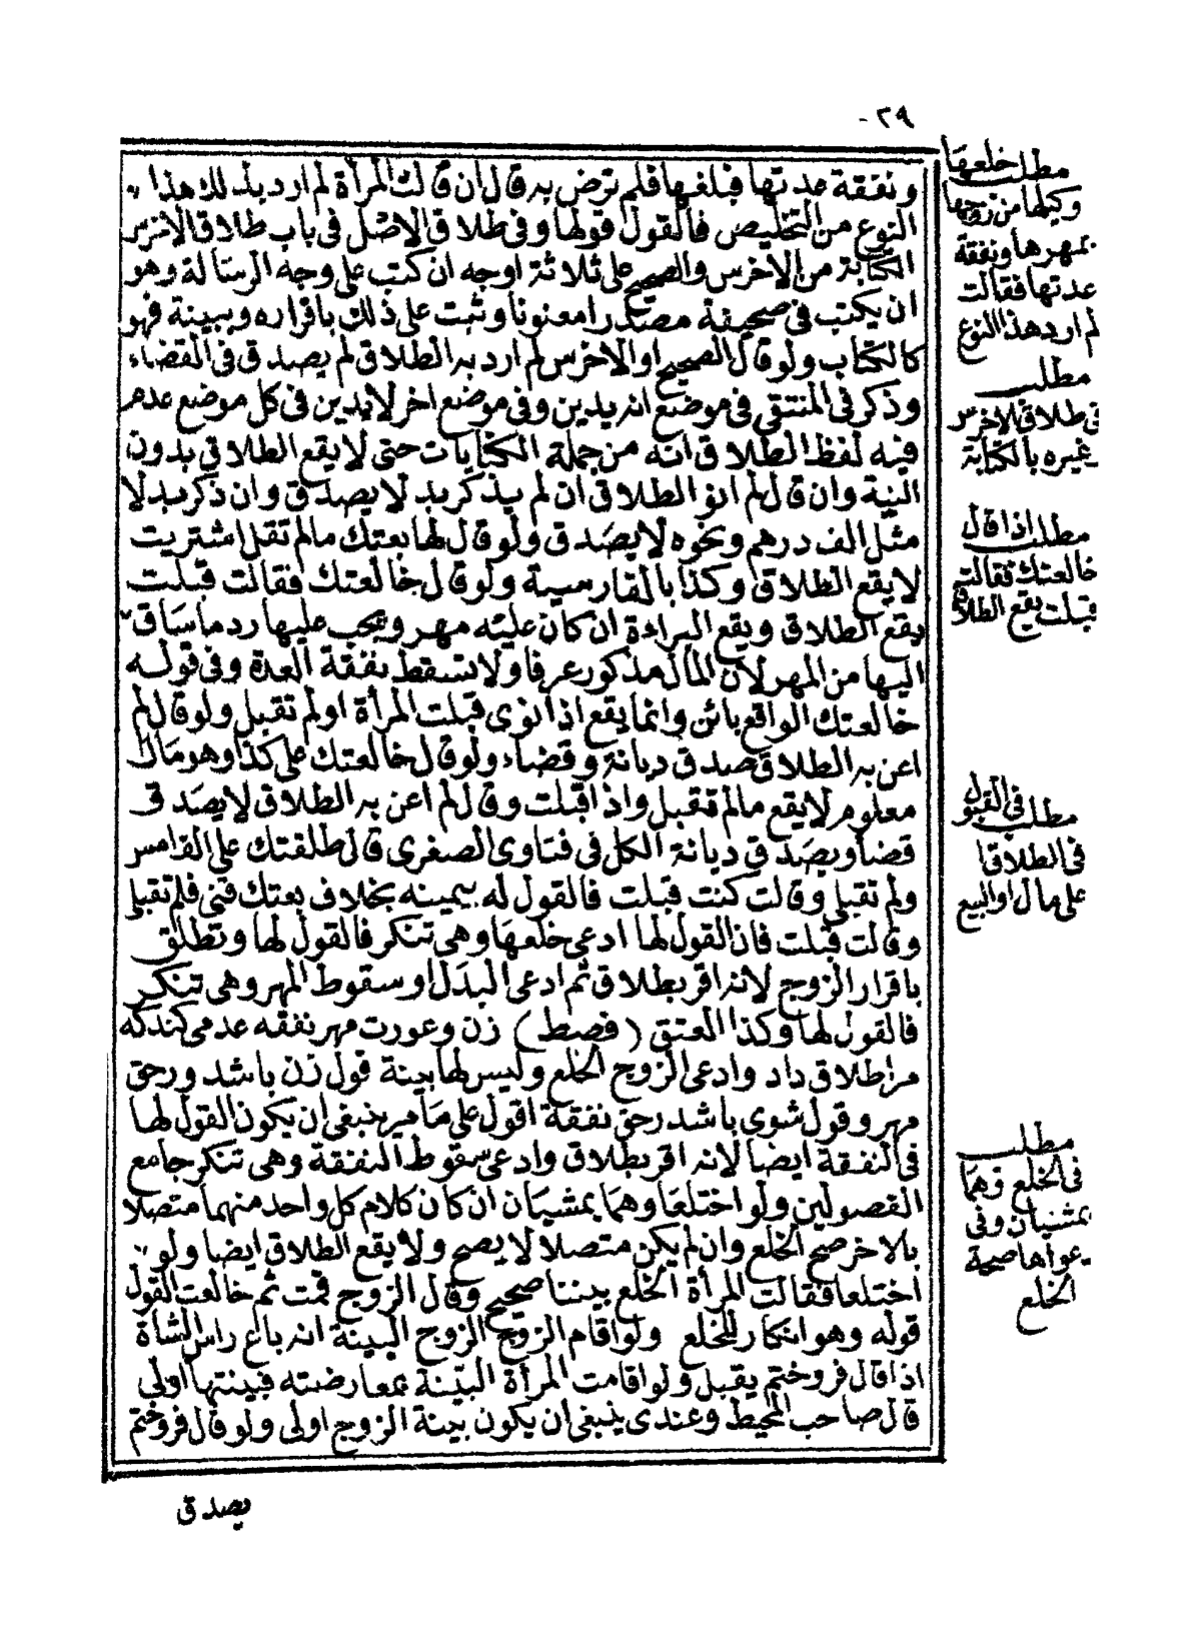 ٢٩٠
ونفقة عدتها فبلغها فلم ترض به قال ان قالت المرأة لم ارد بذلك هذا
النوع من التخليص فالقول قولها وفى طلاق الاصل فى باب طلاق الاخرس
الكتابة من الاخرس والصحيح على ثلاثة اوجه ان كتب على وجه الرسالة وهو
ان يكتب فى صحيفة مصدرا معنونا وثبت على ذلك باقراره وببينة فهو
كالكتاب ولو قال الصحيح او الاخرس لم ارد به الطلاق لم يصدق فى القضاء
وذكر فى المنتقى فى موضع انه يدين وفى موضع اخر لا يدين فى كل موضع عدم
فيه لفظ الطلاق انه من جملة الكنايات حتى لا يقع الطلاق بدون
النية وان قال لم انو الطلاق ان لم يذكر بدلا يصدق وان ذكر بدلا
مثل الف درهم ونحوه لا يصدق ولو قال لها بعتك مالم تقل اشتريت
لا يقع الطلاق وكذا بالفارسية ولو قال خالعتك فقالت قبلت
يقع الطلاق ويقع البراءة ان كان عليه مهر ويجب عليها رد ما ساق
اليها من المهر لان المال مذكور عرفا ولا تسقط نفقة العدة وفى قوله
خالعتك الواقع بائن وانما يقع اذا نوى قبلت المرأة اولم تقبل ولو قال لم
اعن به الطلاق صدق ديانة وقضاء ولو قال خالعتك على كذا وهو مال
معلوم لا يقع مالم تقبل واذا قبلت وقال لم اعن به الطلاق لا يصدق
قضا ويصدق ديانة الكل فى فتاوى الصغرى قال طلقتك على الف امس
ولم تقبلى وقالت كنت قبلت فالقول له بيمينه بخلاف بعتك قنى فلم تقبلى
وقالت قبلت فان القول لها ادعى خلعها وهى تنكر فالقول لها وتطلق
باقرار الزوج لانه اقر بطلاق ثم ادعى البدل او سقوط المهر وهى تنكر
فالقول لها وكذا العتق (فصط) زن وعورت مهر نفقه عدمى كند كه
مرا طلاق داد وادعى الزوج الخلع وليس لها بينة قول زن باشد ورحق
مهر وقول شوى باشد رحق نفقة اقول على ما مر ينبغى ان يكون القول لها
فى النفقة ايضا لانه اقر بطلاق وادعى سقوط النفقة وهى تنكر جامع
الفصولين ولو اختلعا وهما يمشيان ان كان كلام كل واحد منهما متصلا
بالاخر صح الخلع وان لم يكن متصلا لا يصح ولا يقع الطلاق ايضا ولو
اختلعا فقالت المرأة الخلع بيننا صحيح وقال الزوج قمت ثم خالعت القول
قوله وهو انكار للخلع ولو اقام الزوج الزوج البينة انه باع راس الشاة
اذا قال فروختم يقبل ولو اقامت المرأة البينة بمعارضته فبينتها اولى
قال صاحب المحيط وعندى ينبغى ان يكون بينة الزوج اولى ولو قال فروختم
يصدق
مطلب خلعها
وكيلها من زوجها
بمهرها ونفقة
عدتها فقالت
لم ارد هذا النوع
مطلب
فى طلاق الاخرس
غيره بالكتابة
مطلب اذا قال
خالعتك فقالت
قبلت يقع الطلاق
مطلب فى القبول
فى الطلاق
على مال او البيع
مطلب
فى الخلع وهما
يمشيان وفى
دعواها صحة
الخلع